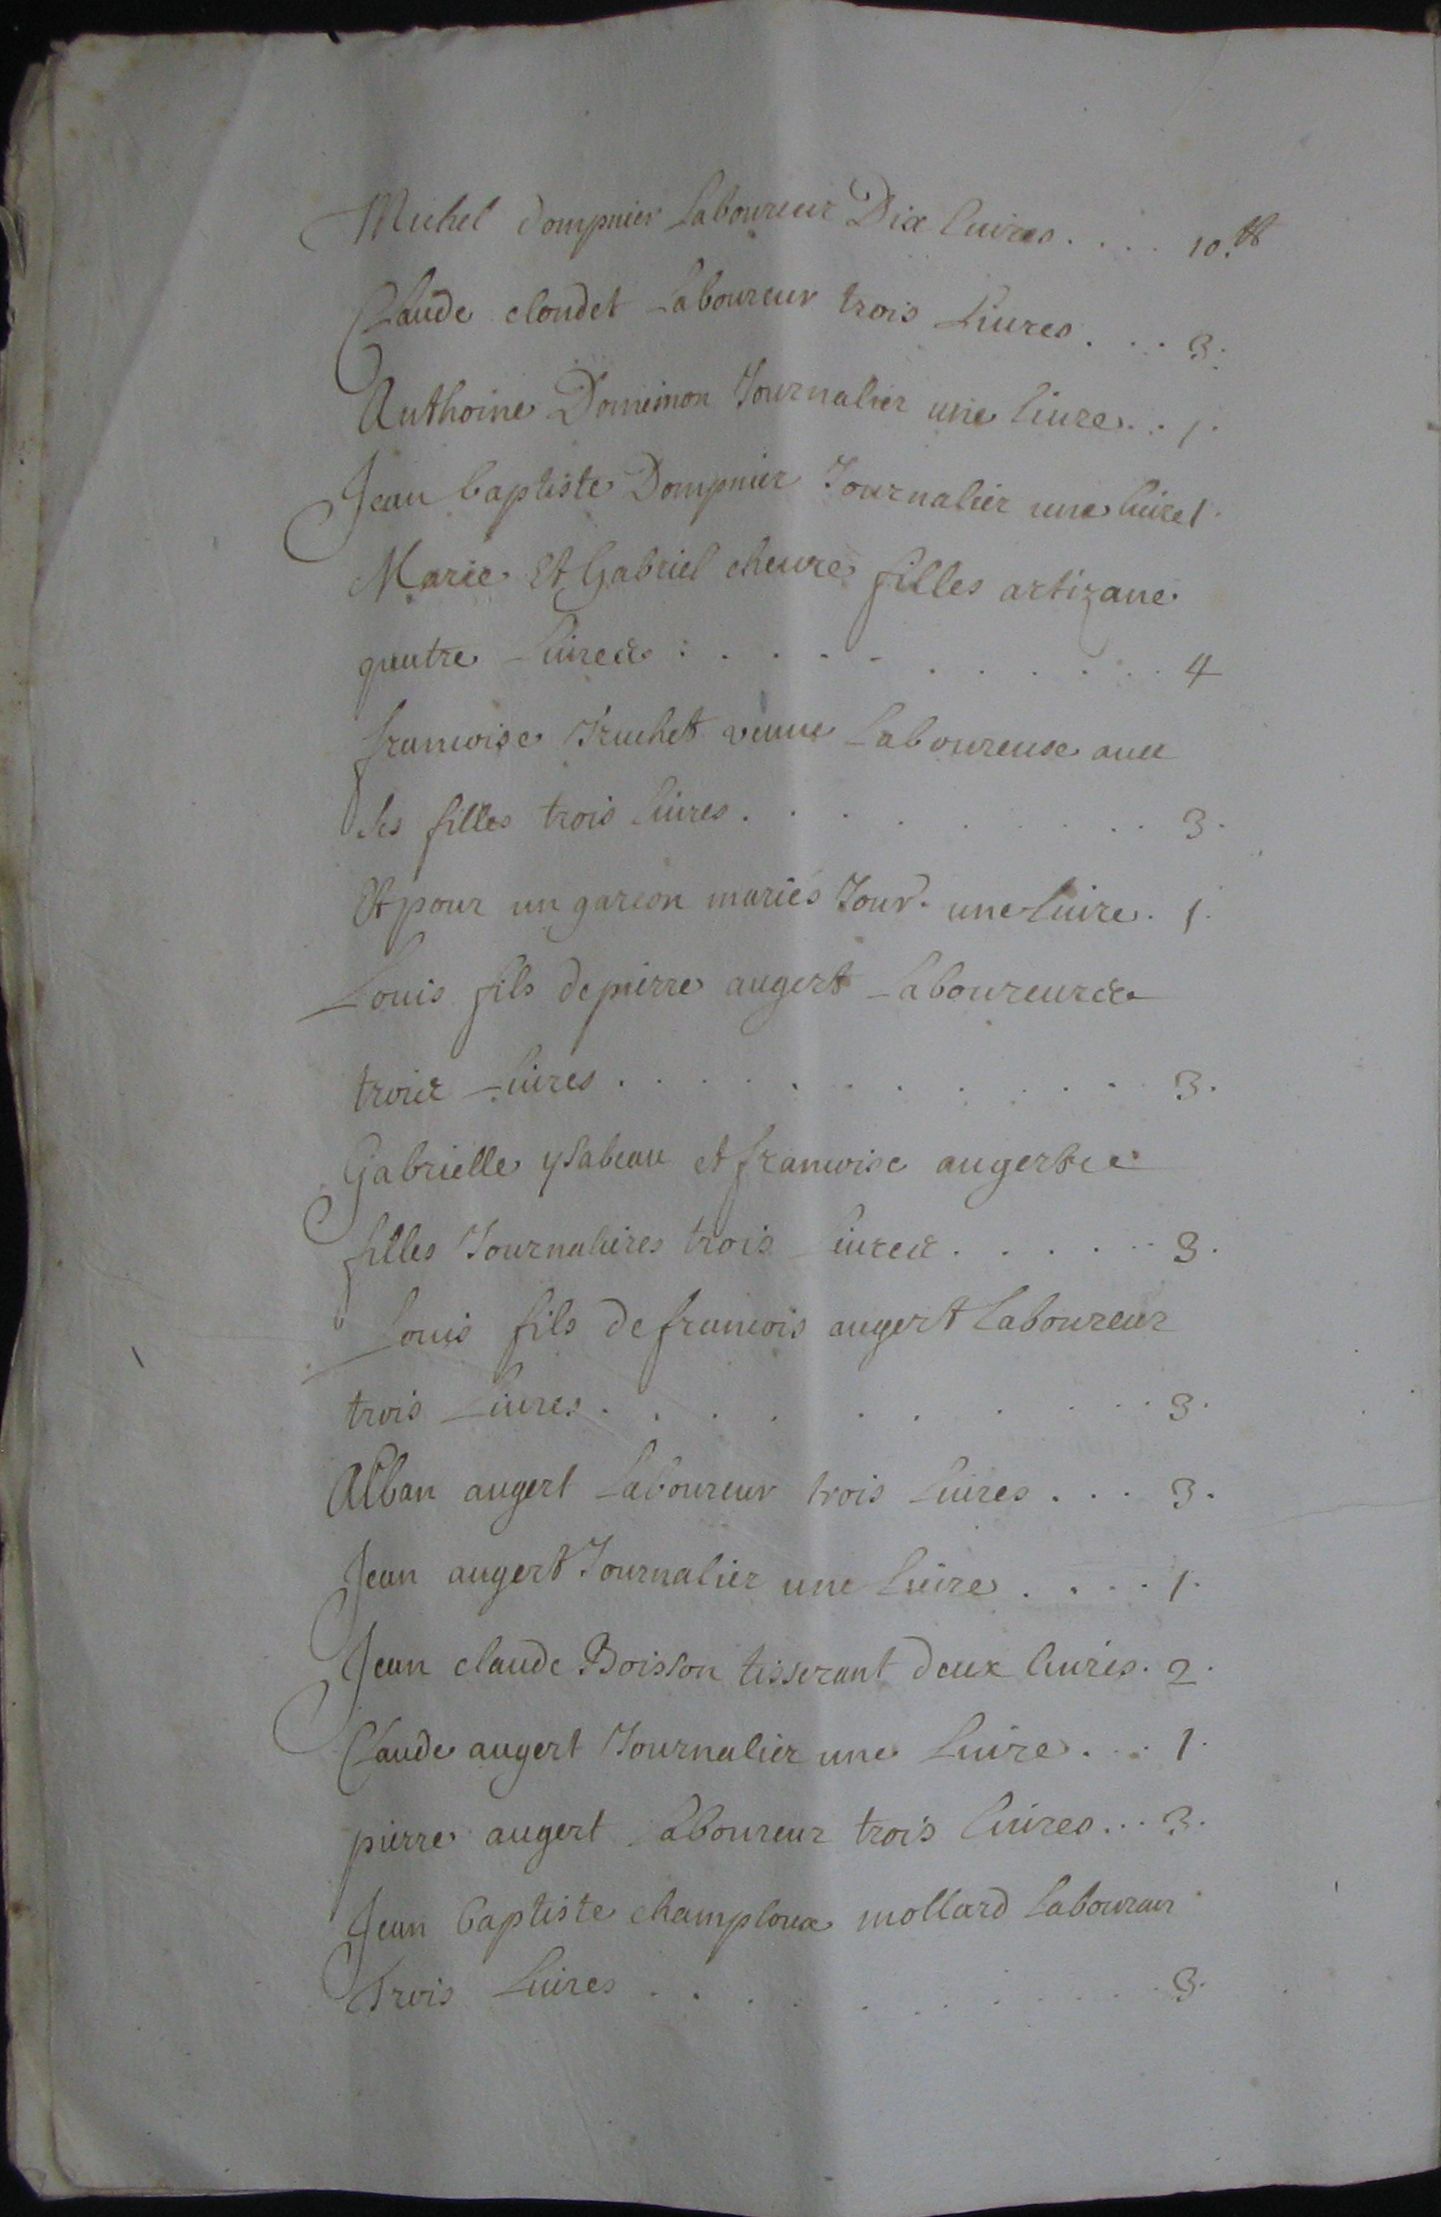 Michel dompnier Laboureur Dix liures .... 10.tt
Claude cloudet Laboureur trois Liures ... 3.
Anthoine Domeinon Journalier une liure .. 1.
Jean baptiste Dompnier Journalier une liure 1.
Marie Et Gabriel cheure filles artizane
quatre Liures : . . . . . . . . . 4
francoise Truchet veuue Laboureuse auec
ses filles trois liures . . . . . . . . 3.
Et pour un garcon mariés Jour. une liure . 1.
Louis fils de pierre augert Laboureur
trois Liures . . . . . . . . . . . 3.
Gabrielle ysabeau et francoise augert
filles Journalieres trois Liures . . . . . . 3.
Louis fils de francois augert Laboureur
trois Liures . . . . . . . . . . 3.
Alban augert Laboureur trois liures . . . 3.
Jean augert Journalier une liure . . . . 1.
Jean claude Boisson tisserant deux liures . 2.
Claude augert Journalier une liure . . . 1.
pierre augert Laboureur trois liures ... 3.
Jean baptiste champloux mollard Laboureur
Trois liures . . . . . . . . . . 3.